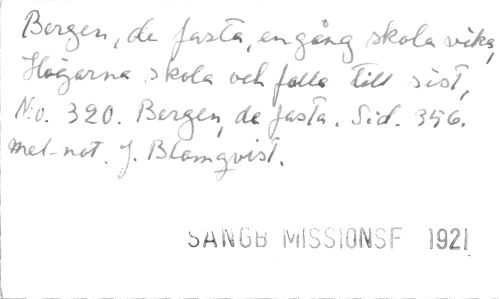 Bergen, de fasta, engång skola vika,
Högarna skola och falla till sist,
N:o. 320. Bergen, de fasta. Sid. 356.
Mel-not. J. Blomqvist.
SANGB MISSIONSF 1921